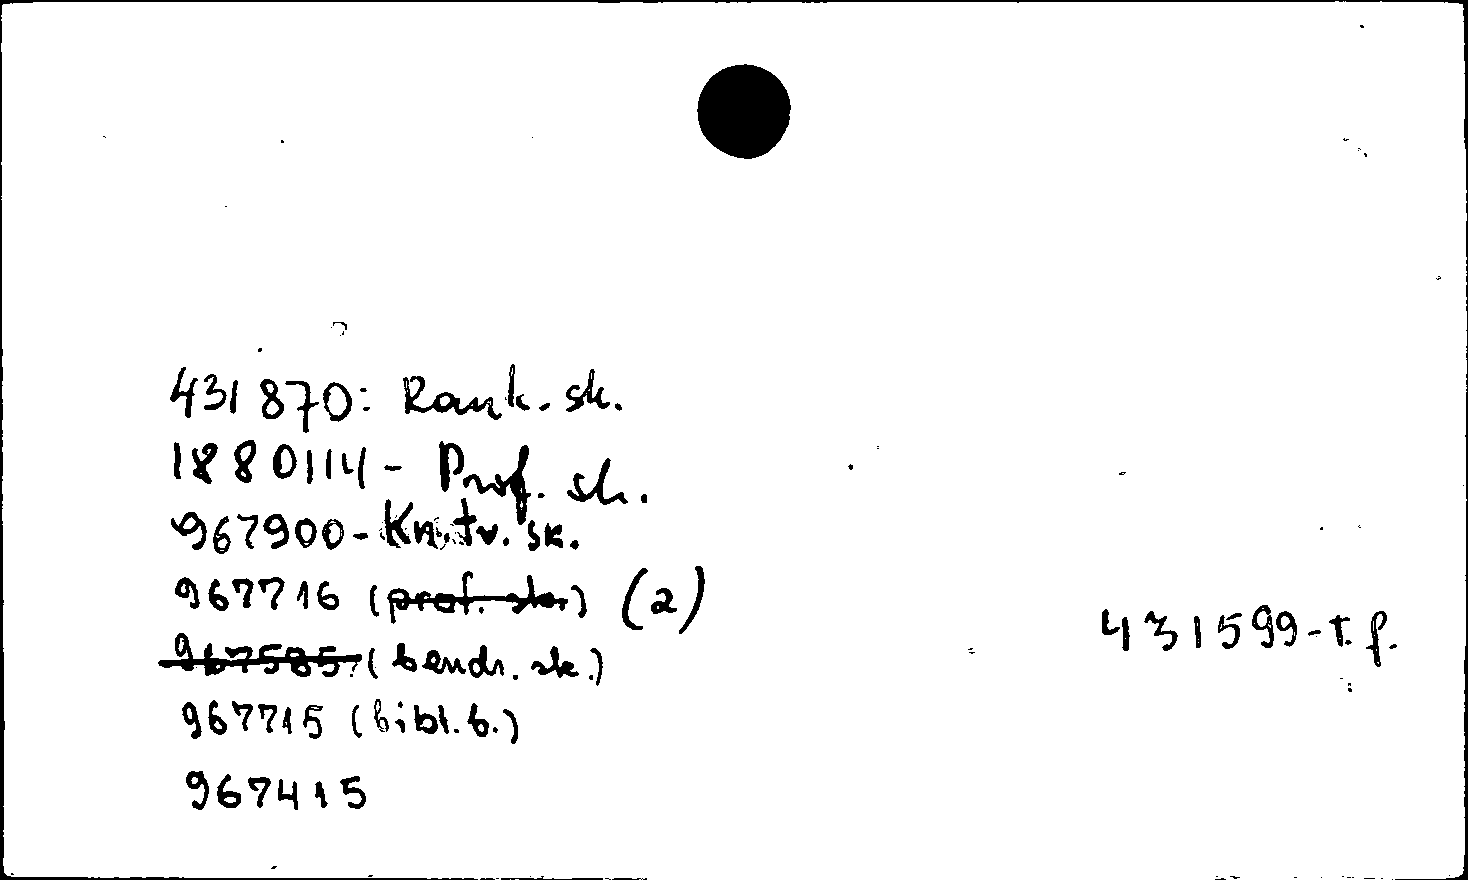 431870: Rank. sk.
1880114 - Prof. sk.
967900 - Kn. tv. sk.
967716 (prof. sk.) (2)
967585 (bendr. sk.)
431599 - t. f.
967715 (bibl. b.)
967415